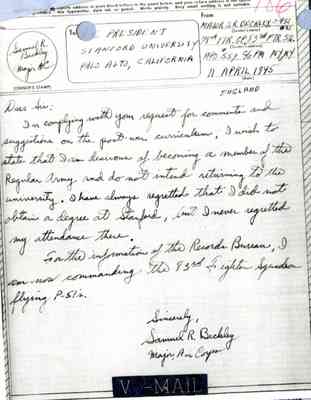 To
PRESIDENT
STANFORD UNIVERSITY
PALO ALTO, CALIFORNIA
From
11 APRIL 1945
ENGLAND
Samuel R.
Beckley
Major AC
Dear Sir:
In complying with your request for comments and
suggestions on the post war curriculum, I wish to
state that I am desirous of becoming a member of the
Regular Army and do not intend returning to the
university. I have always regretted that I did not
obtain a degree at Stanford, but I never regretted
my attendance there.
For the information of the Records Bureau, I
am now commanding the Fighter Squadron
flying P-51's.
Sincerely,
Samuel R. Beckley
Major Air Corps
V-MAIL